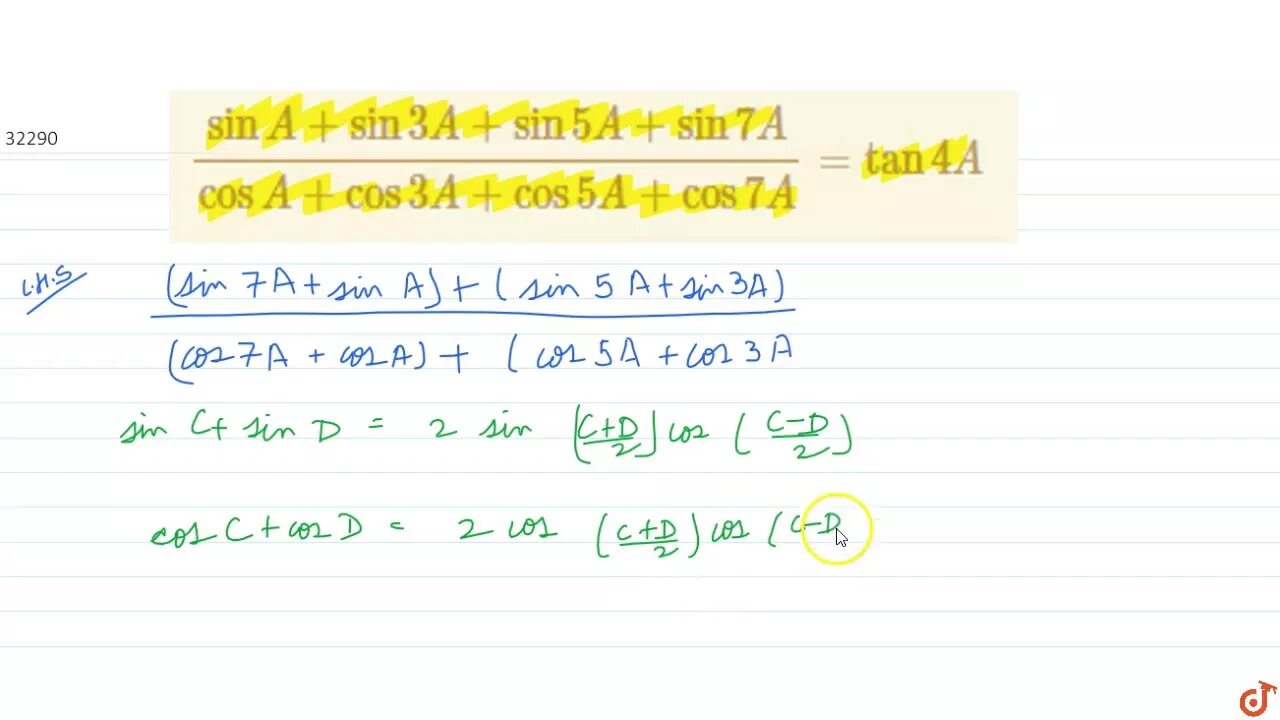 32290
sin A + sin 3A + sin 5A + sin 7A / cos A + cos 3A + cos 5A + cos 7A = tan 4A
L.H.S (sin 7A + sin A) + ( sin 5A + sin 3A)
(cos 7A + cos A) + ( cos 5A + cos 3A
sin C + sin D = 2 sin (C+D/2) cos (C-D/2)
cos C + cos D = 2 cos (C+D/2) cos (C-D